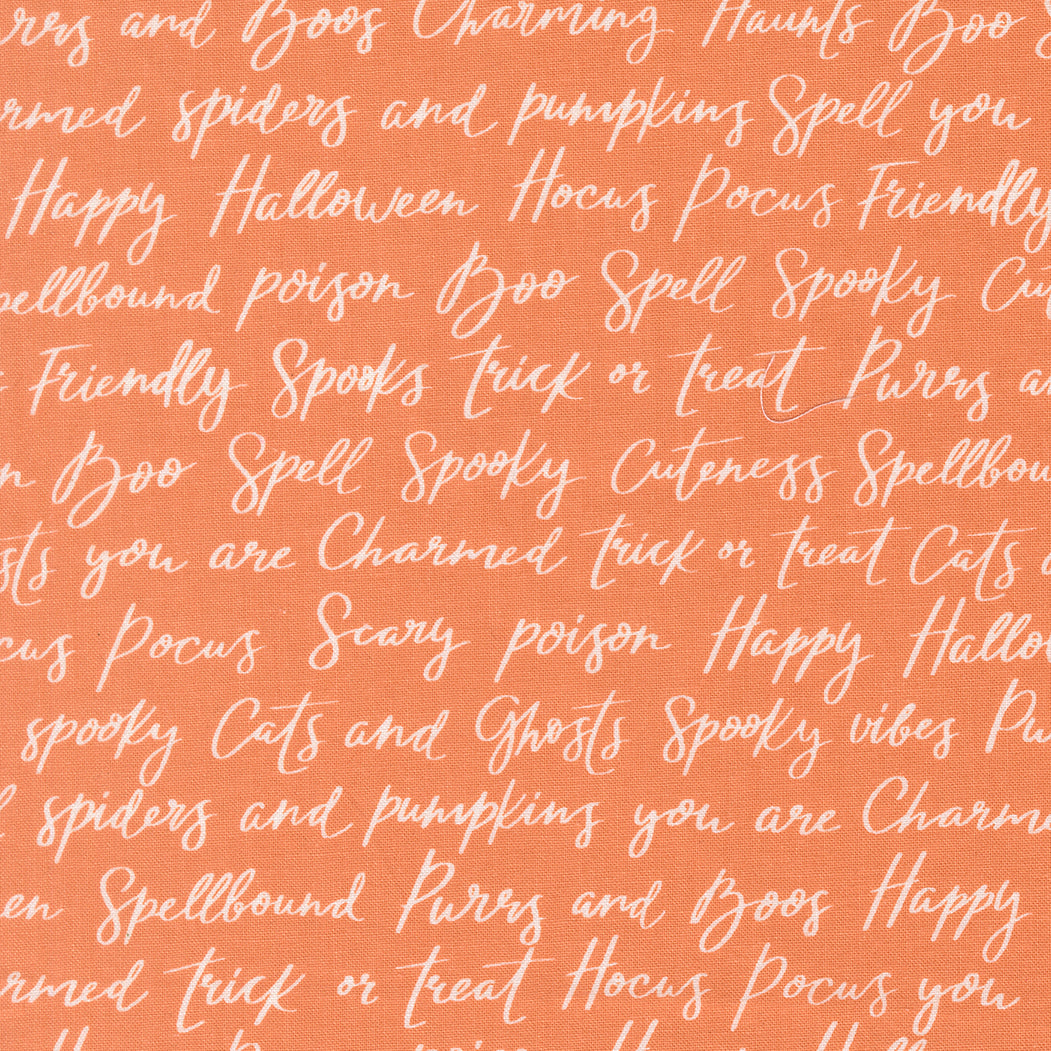 urrs and Boos Charming Haunts Boo S
rmed spiders and pumpkins Spell you
Happy Halloween Hocus Pocus Friendly
pellbound poison Boo Spell Spooky Cut
Friendly Spooks trick or treat Purrs a
n Boo Spell Spooky Cuteness Spellbou
osts you are Charmed trick or treat Cats
cus Pocus Scary poison Happy Hallo
spooky Cats and Ghosts Spooky vibes Pu
spiders and pumpkins you are Charme
en Spellbound Purrs and Boos Happy
rmed trick or treat Hocus Pocus you